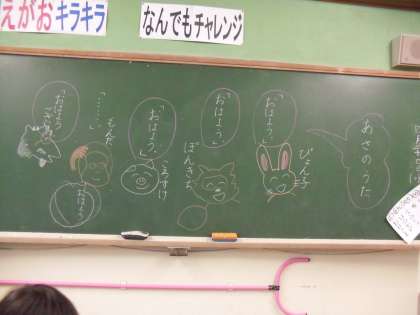 えがお キラキラ
なんでもチャレンジ
あさのうた
「おはよう。」
ぴょん子
「おはよう。」
ぽんきち
「おはよう。」
こうすけ
「……」
もんた
おはよう
「おはよう